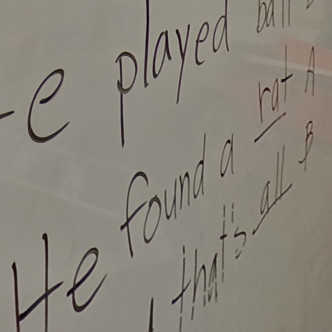 e played ball
He found a rat A
that's all B